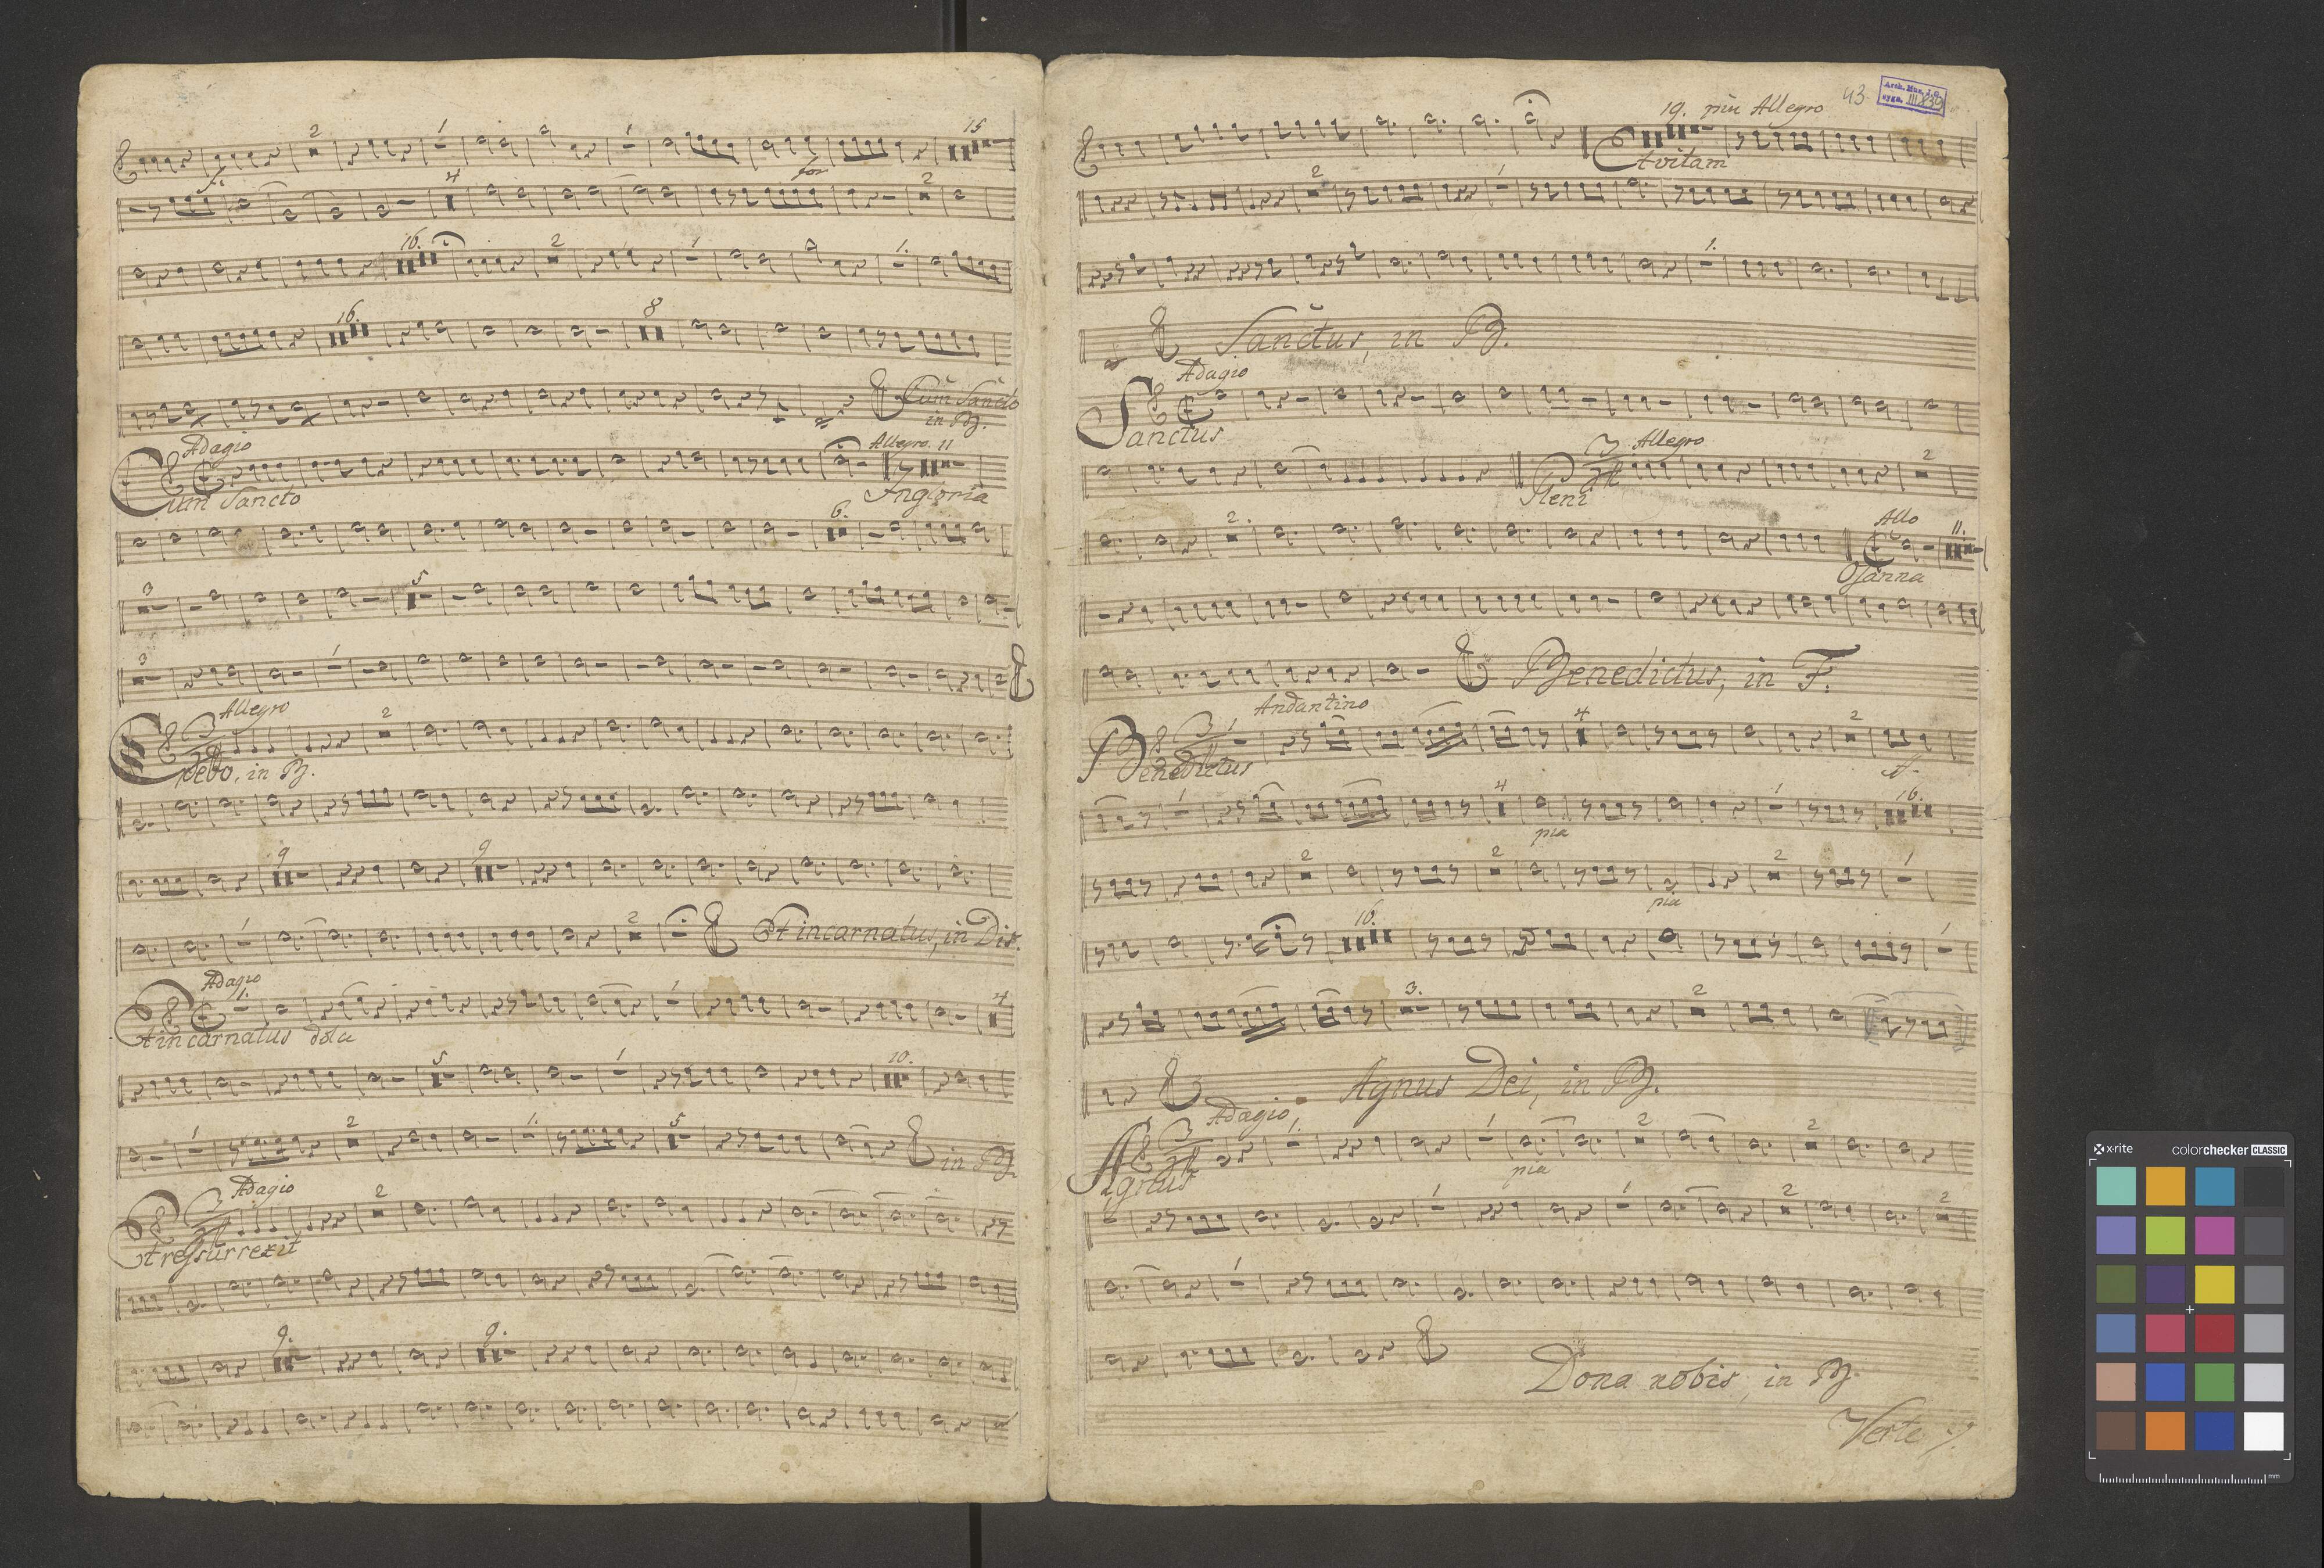 2 1 1 15
f. for
4 2
16. 2 1 1.
16. 8
Cum Sancto
in B.
Adagio Allegro 11
Cum Sancto Ingloria
6.
3 5
3 1
Allegro 2
Credo, in B.
9 9
1 2 Et incarnatus, in Dis.
Adagio
1. 1 4
Et incarnatus dolce
5 1 10.
1 2 1. 5 in B.
Adagio 2
Et ressurrexit
9. 9.
43. Arch. Mus. J. G.
sygn. III 839
19. piu Allegro
Et vitam
2 1
1.
Sanctus, in B.
Adagio
Sanctus
3 Allegro 2
Pleni
2. Allo 11.
Osanna
Benedictus, in F.
Andantino
3 1 4 2
Benedictus
1 4 1 16.
pia
2 2 2 1
pia
16. 1
3. 2
Agnus Dei, in B.
Adagio.
3 1. 1 2 2
Agnus pia
1 1 1 2 2
1
Dona nobis, in B.
Verte
x-rite colorchecker CLASSIC
mm